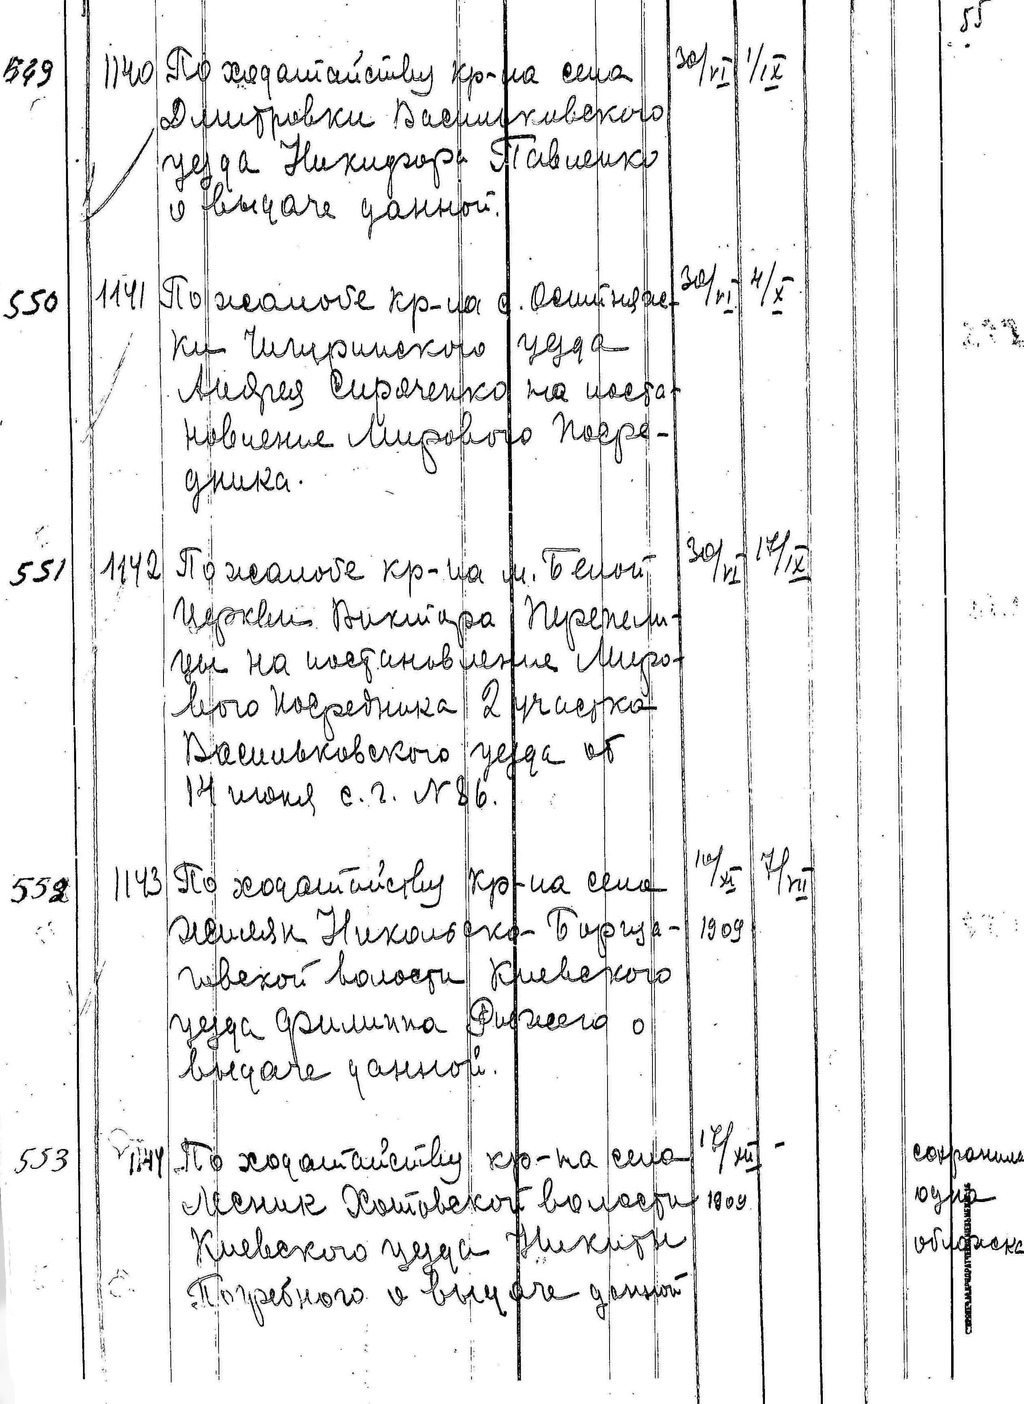 55
549 1140 По ходатайству кр-на села 30/VI 1/IX
Дмитровки Васильковского
уезда Никифора Павленко
о выдаче данной.
550 1141 По жалобе кр-на с. Оситняж- 30/VI 4/X
ки Чигиринского уезда
Андрея Сираченко на поста-
новление Мирового Посре-
дника.
551 1142 По жалобе кр-на м. Белой 30/VI 17/IX
Церкви Виктора Перепели-
цы на постановление Миро-
вого Посредника 2 участка
Васильковского уезда от
14 июня с.г. N 86.
552 1143 По ходатайству кр-на села 10/XI 7/VII
Жилян Никольско-Борща- 1909
говской волости Киевского
уезда Филиппа Рыжего о
выдаче данной.
553 1144 По ходатайству кр-на села 17/XII - сохранилась
Лесник Хотовской волости 1909 одна
Киевского уезда Никиты обложка
Погребного о выдаче данной